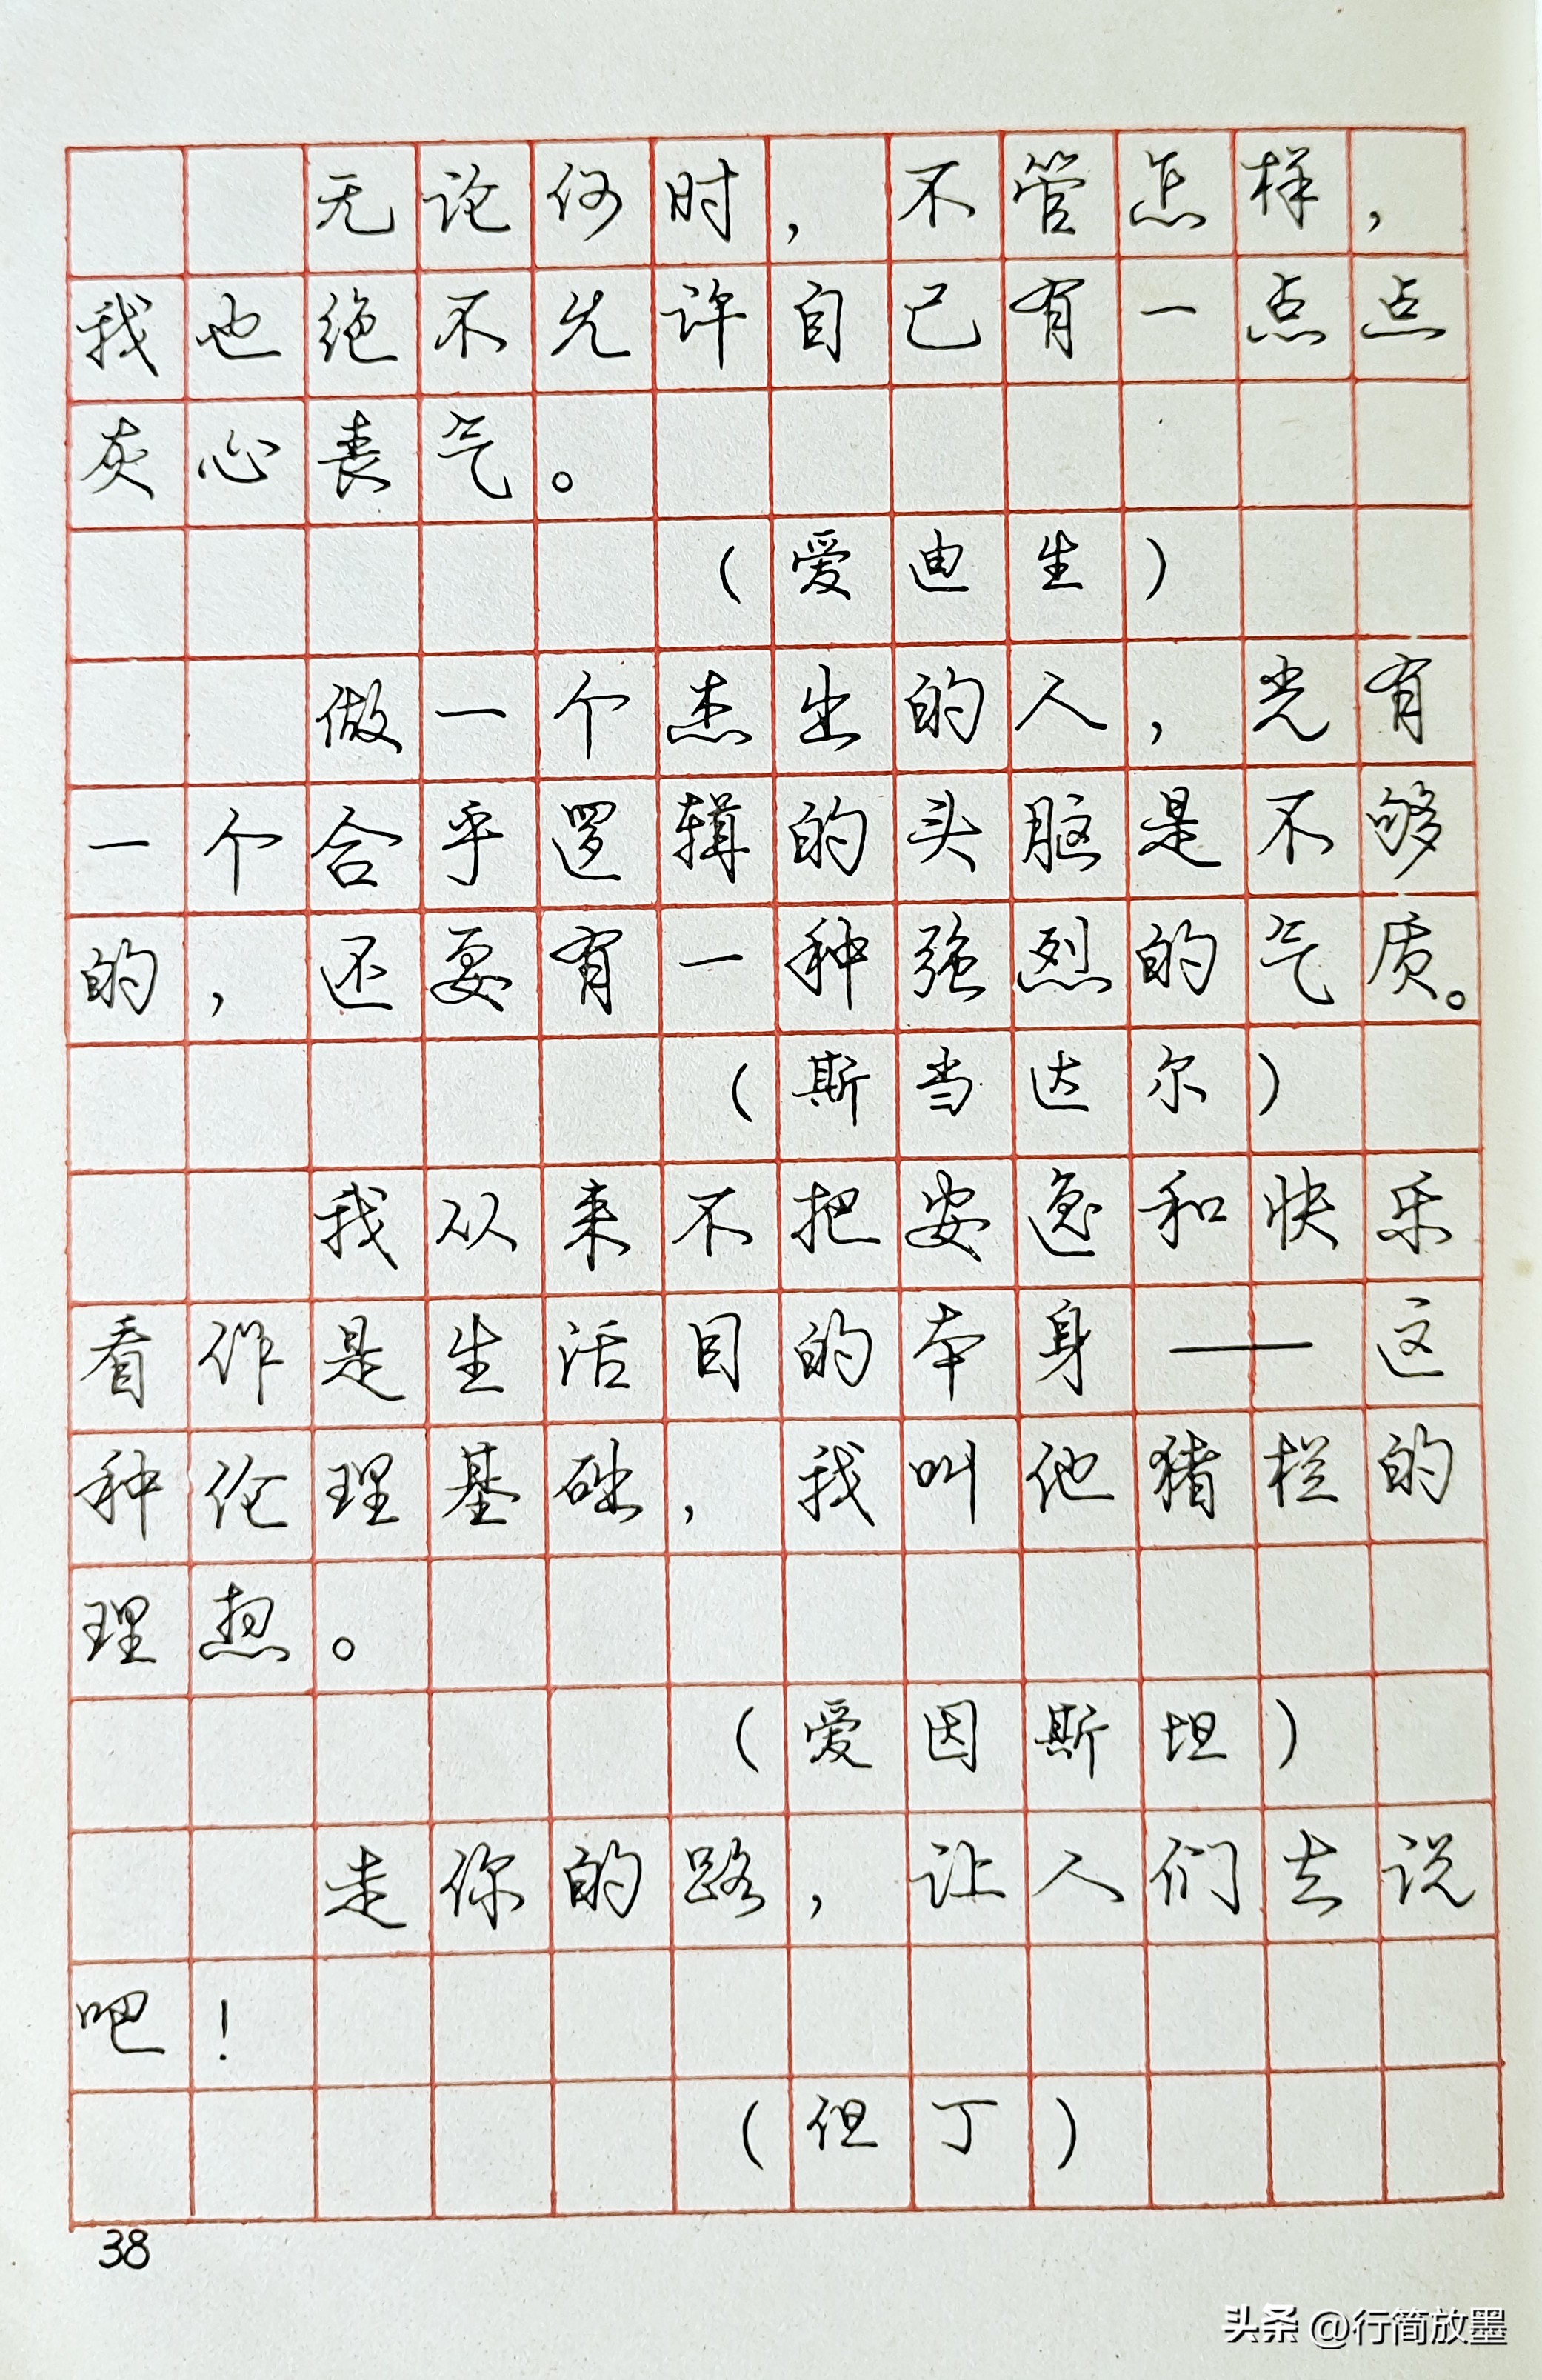 无论何时，不管怎样，
我也绝不允许自己有一点点
灰心丧气。
（爱迪生）
做一个杰出的人，光有
一个合乎逻辑的头脑是不够
的，还要有一种强烈的气质。
（斯当达尔）
我从来不把安逸和快乐
看作是生活目的本身——这
种伦理基础，我叫他猪栏的
理想。
（爱因斯坦）
走你的路，让人们去说
吧！
（但丁）
38
头条 @行简放墨